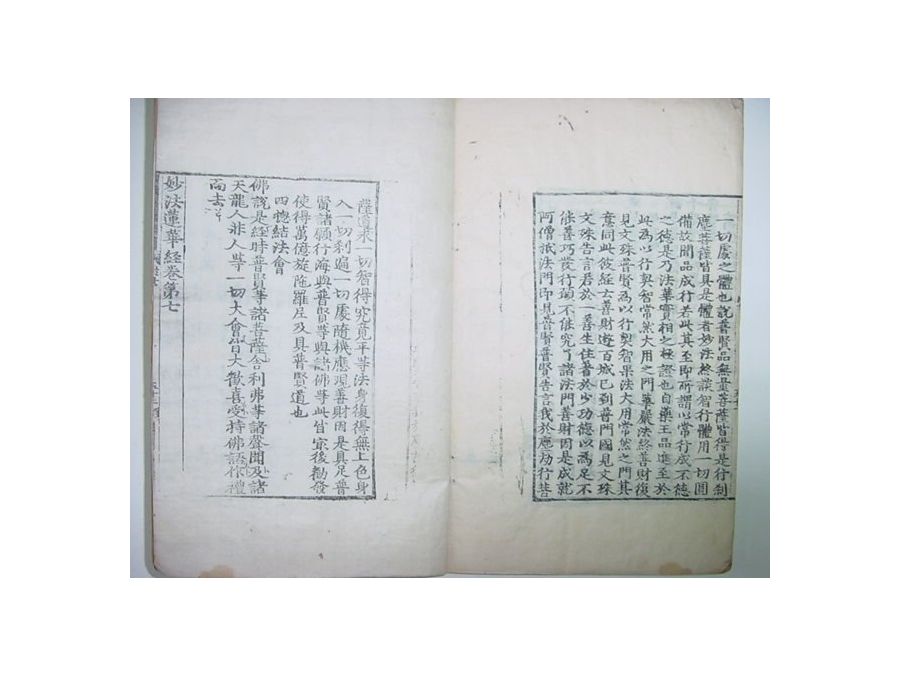 一切處之體也說普賢品無量菩薩皆得是行刹
應菩薩皆具是體者妙法終談智行體用一切圓
備設聞品成行若此其至即所謂心常行成不德
之德是乃法華實相之極證也自藥王品進至於
此為以行契智常然大用之門華嚴法終善財復
見文殊普賢為以行契智果法大用常然之門其
意同此彼經云善財遊百城已到普門國見文殊
文殊告言若於一善生住著於少功德以為足不
能善巧發行願不能究了諸法門善財因是成就
阿僧祇法門即見普賢普賢告言我於塵劫行菩
薩道求一切智得究竟平等法身復得無上色身
入一切刹遍一切處隨機應現善財因是具足普
賢諸願行海與普賢等與諸佛等此皆冣後勸發
使得萬億旋陁羅尼及具普賢道也
四摠結法會
佛說是經時普賢等諸菩薩舍利弗等諸聲聞及諸
天龍人非人等一切大會皆大歡喜受持佛語作禮
而去
妙法蓮華經卷第七